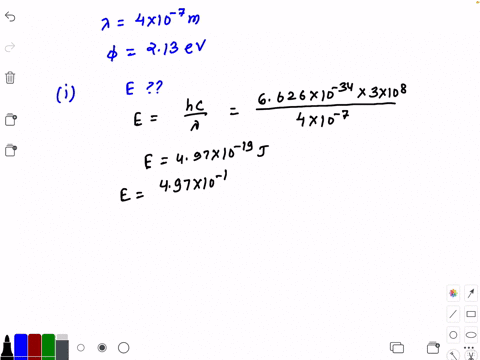 λ = 4×10⁻⁷ m
ϕ = 2.13 eV
(i) E ??
E = hc/λ = 6.626×10⁻³⁴ × 3×10⁸ / 4×10⁻⁷
E = 4.97×10⁻¹⁹ J
E = 4.97×10⁻¹